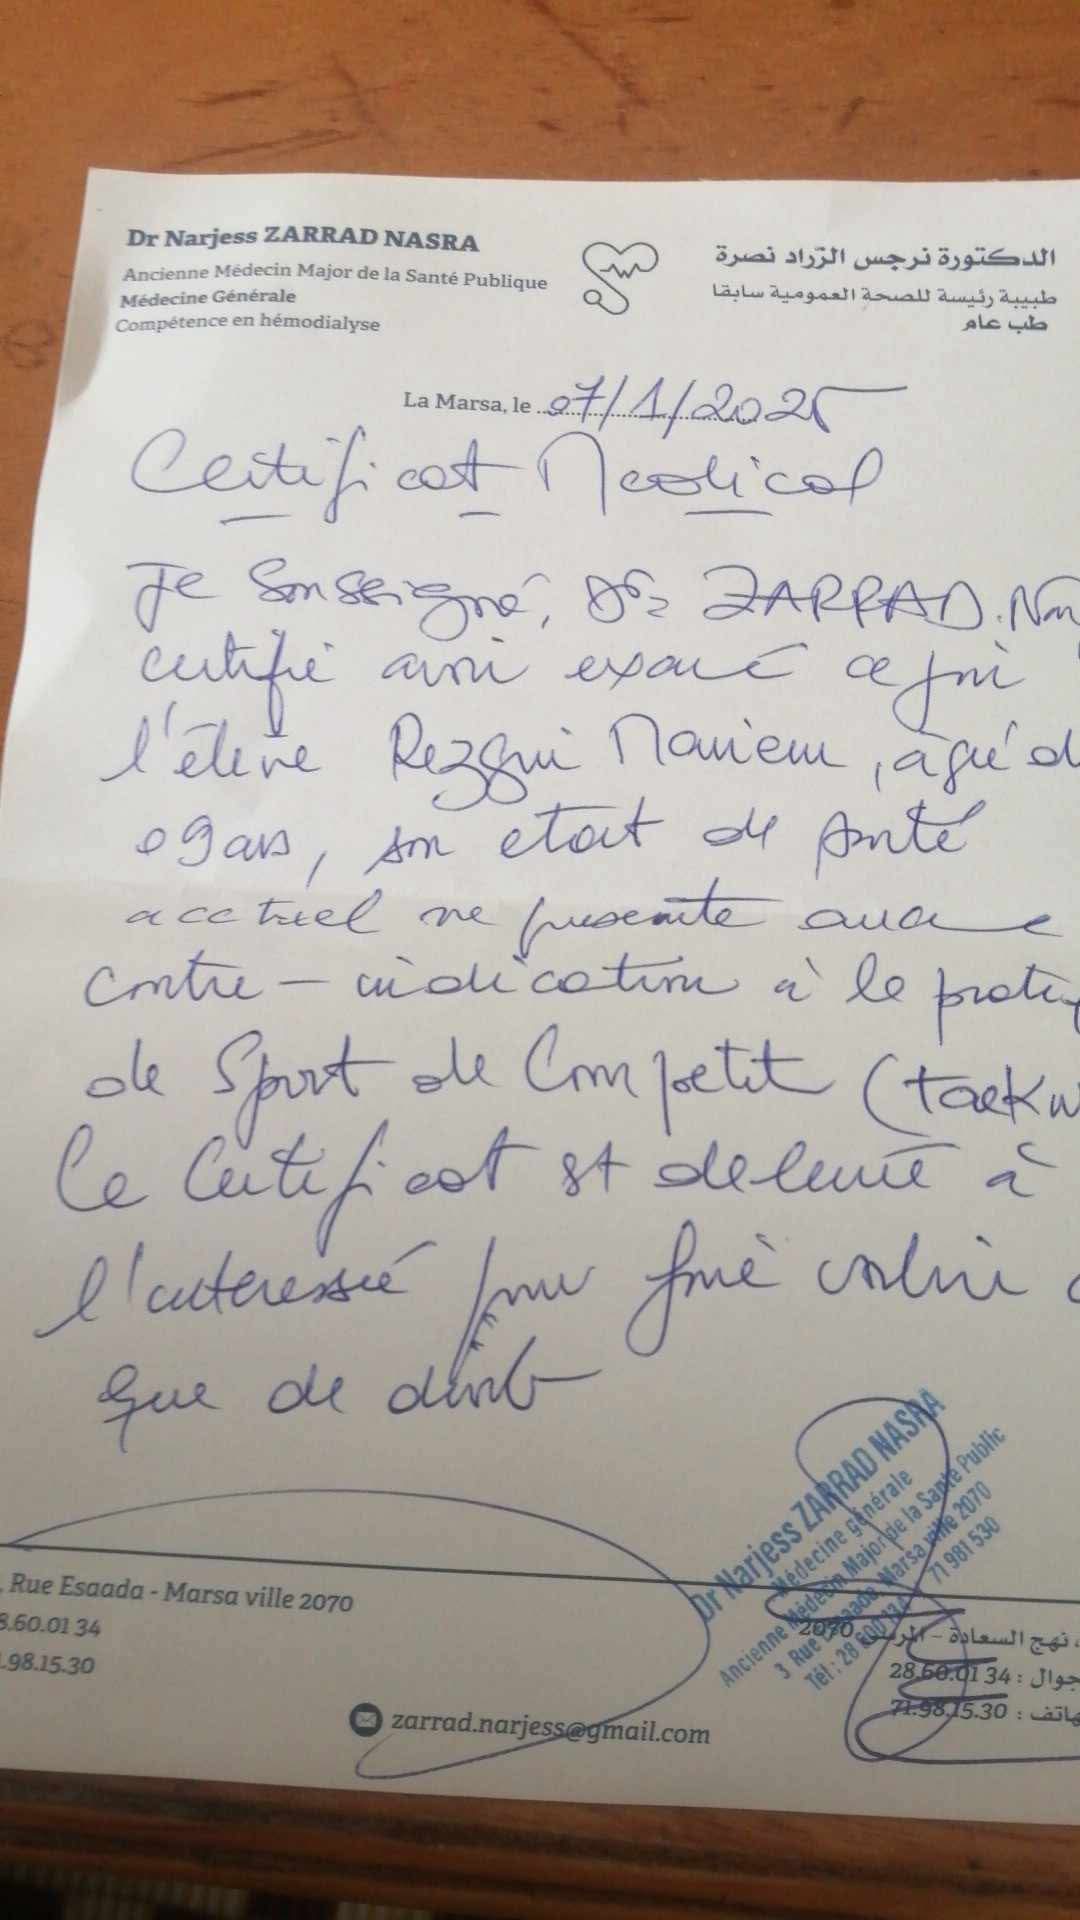 Dr Narjess ZARRAD NASRA
Ancienne Médecin Major de la Santé Publique
Médecine Générale
Compétence en hémodialyse
الدكتورة نرجس الزّراد نصرة
طبيبة رئيسة للصحة العمومية سابقا
طب عام
La Marsa, le 07/1/2025
Certificat Medical
Je Sousseigné, Dr: ZARRAD.Nar
certifie avoir examiné ce jour
l'élève Rezgui Mariem, âgé d
09 ans, son etat de santé
acctuel ne presente aucune
contre-indication à la pratiq
de Sport de Competit (taekw
Ce Certificat est delivré à
l'interessé pour faire valoir
que de droit
Dr Narjess ZARRAD NASRA
Médecine générale
Ancienne Médecin Major de la Santé Public
3 Rue Esaada Marsa ville 2070
Tél : 28 600 134 71 981 530
, Rue Esaada - Marsa ville 2070
8.60.01 34
.98.15.30
نهج السعادة - المرسى 2070
جوال : 28.60.01 34
هاتف : 71.98.15.30
zarrad.narjess@gmail.com